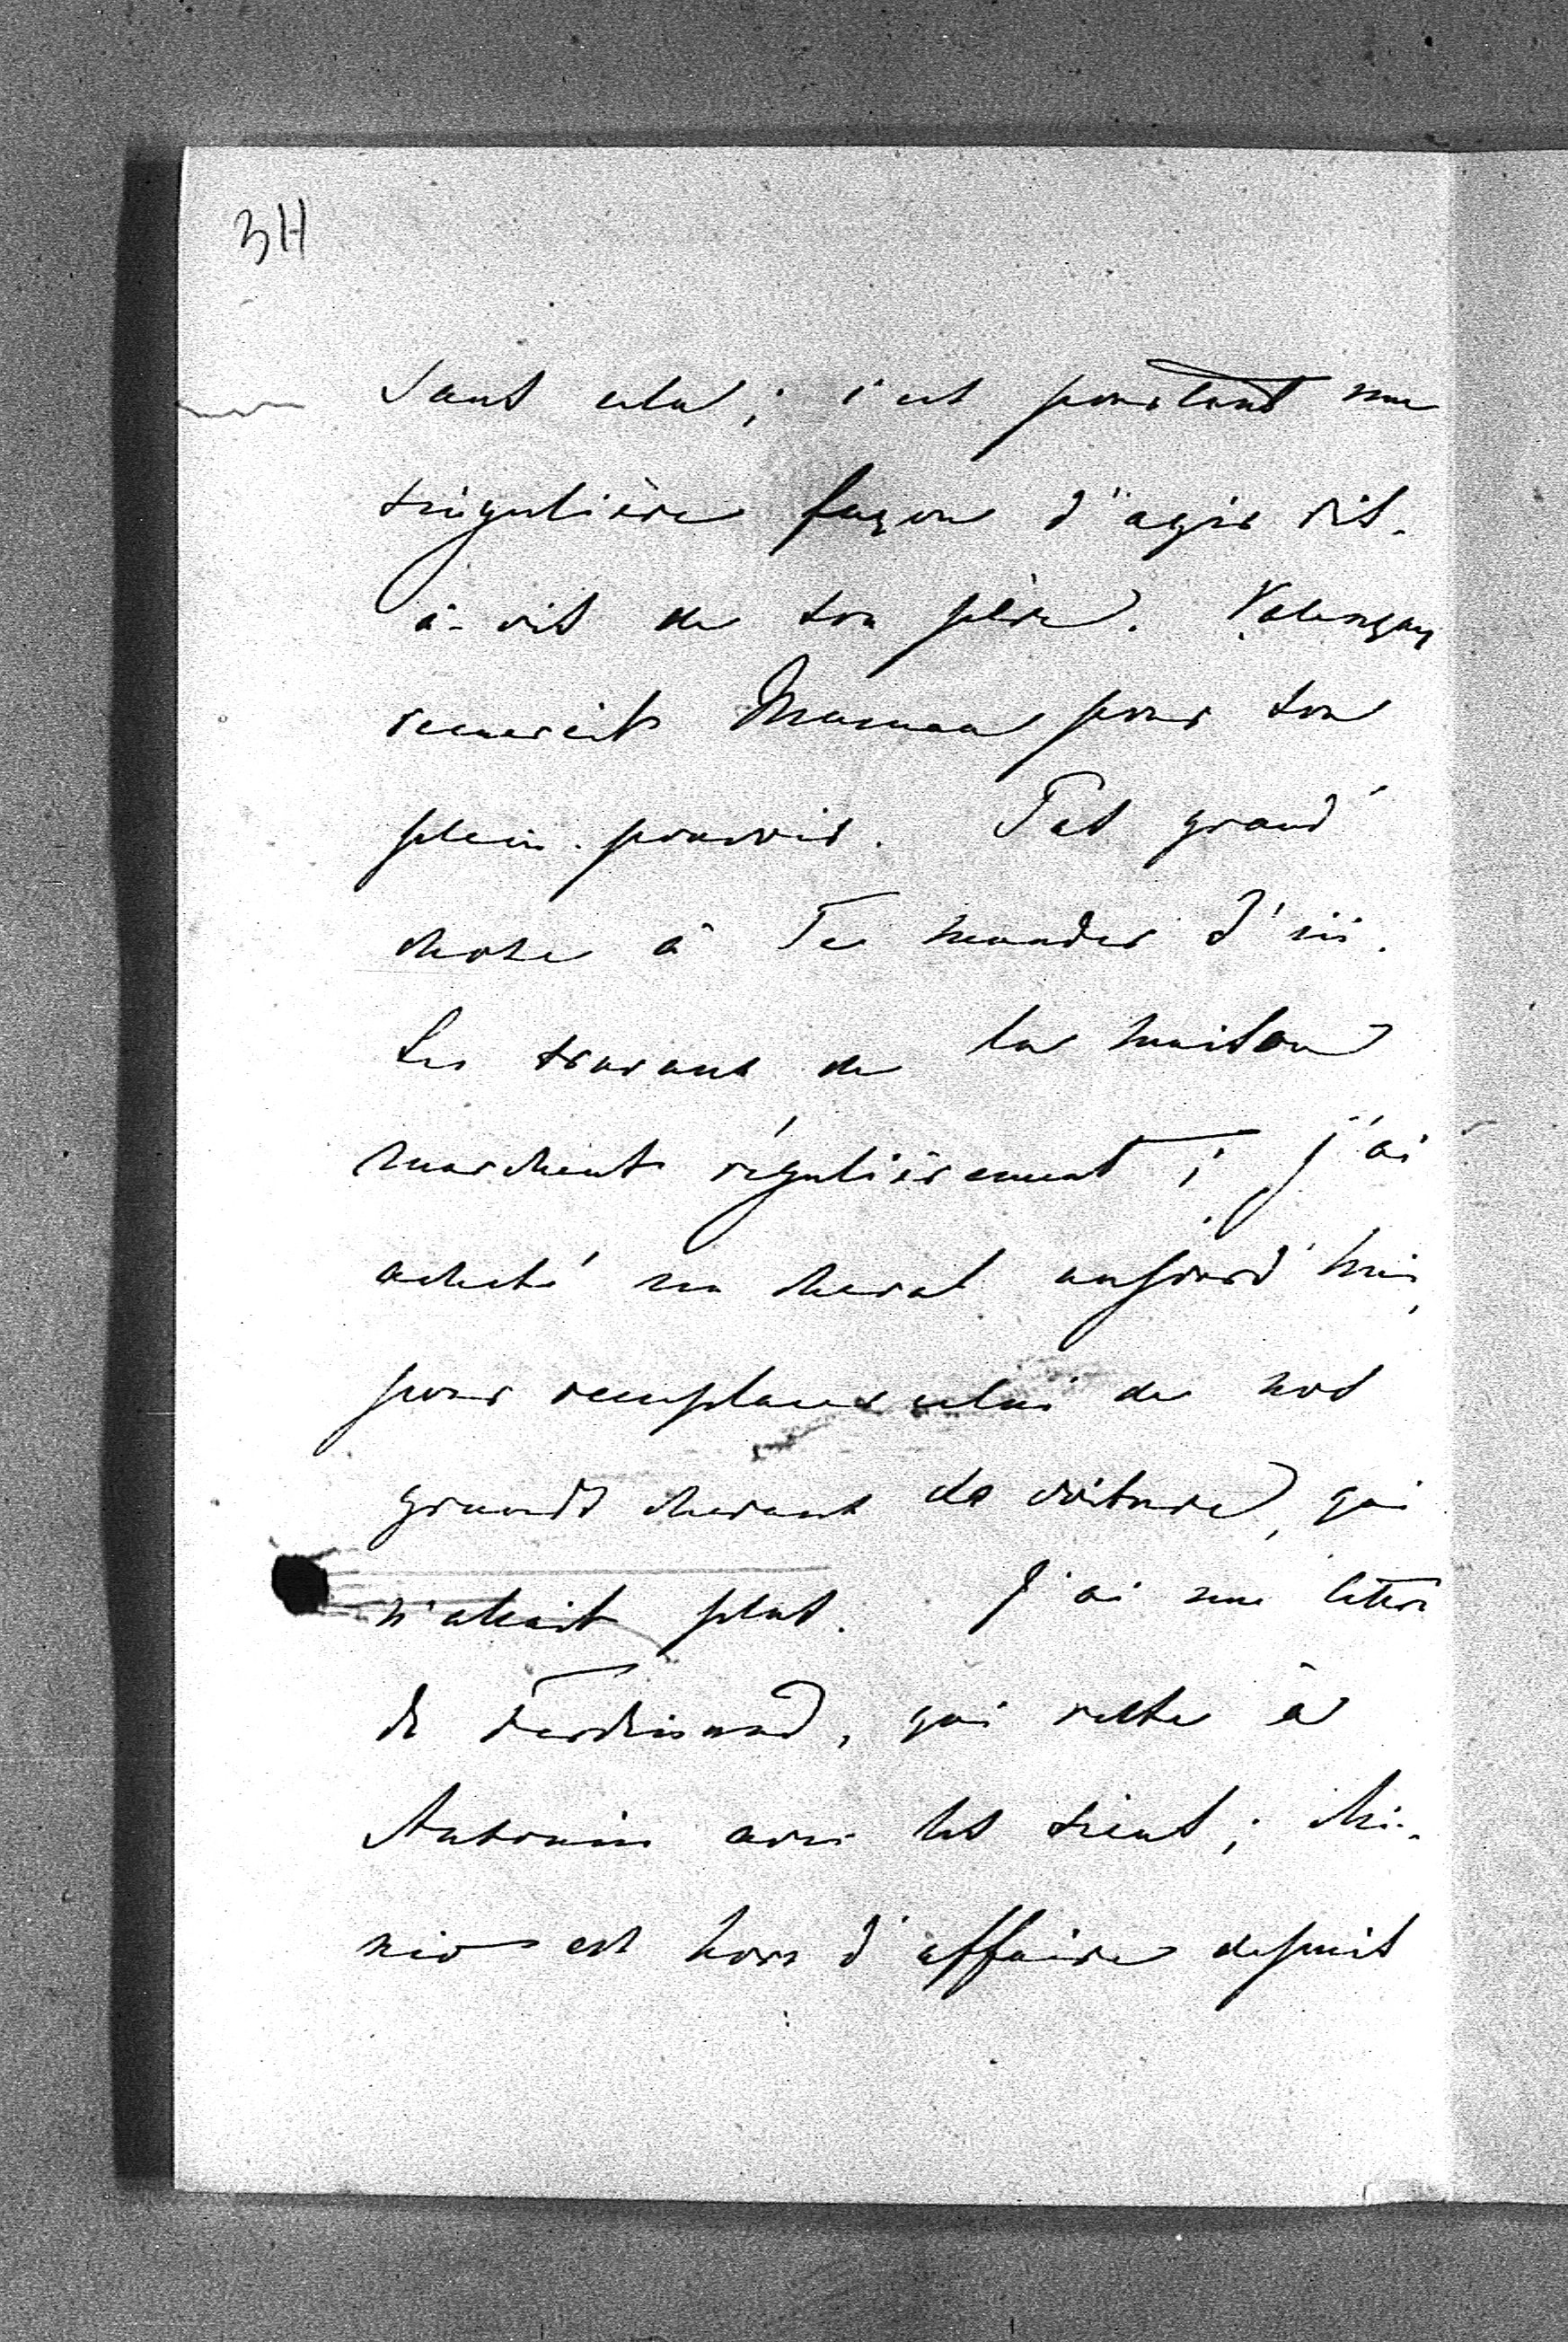 34
Sans cela; c'est pourtant une
singulière façon d'agir vis-
à-vis de son père. Valençay
remercie Maman pour son
plein-pouvoir. Pas grand'
chose à Te mander d'ici.
Les travaux de la maison
marchent régulièrement; j'ai
acheté un cheval aujourd'hui,
pour remplacer celui de nos
grands chevaux de voiture, qui
n'allait plus. J'ai une lettre
de Ferdinand, qui reste à
Antonin avec les siens;
est hors d'affaire depuis